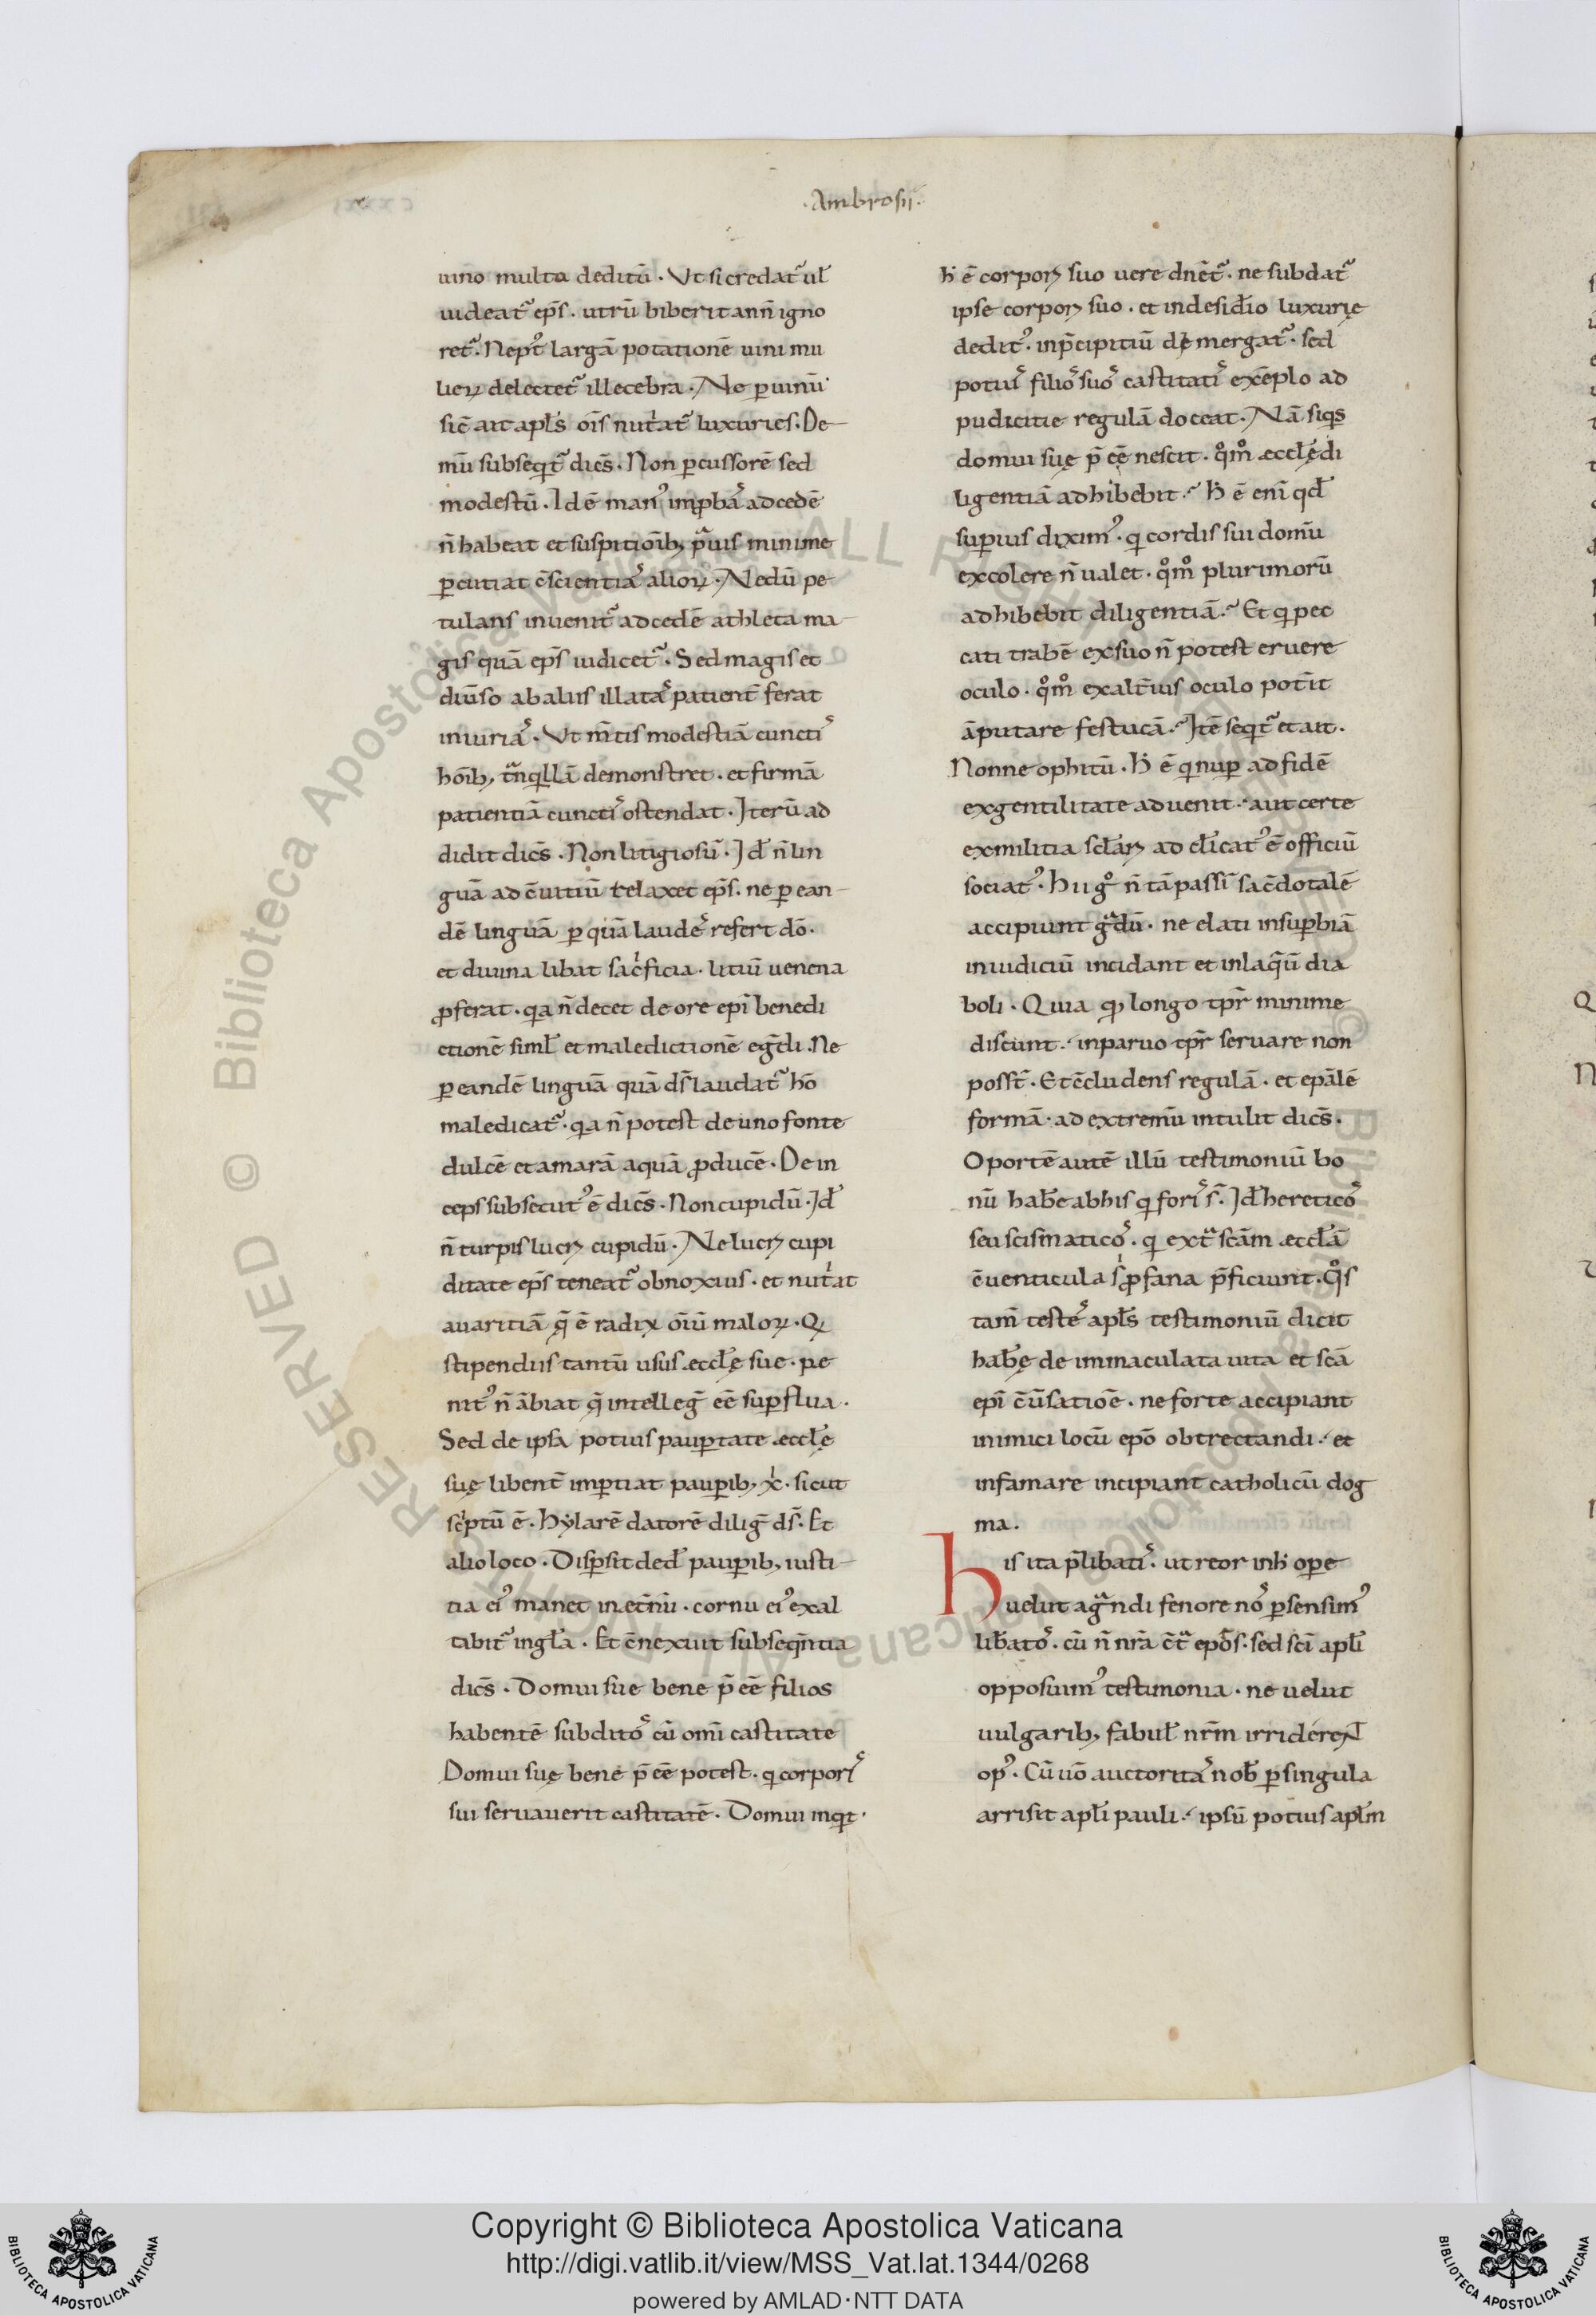 ·Ambrosii·
uino multo deditū · Vt si credat᷒ ul̄
uideat᷒ ep̄s · utrū biberit an n̄ igno
ret᷒ · Nep̱t᷒ largā potationē uini mu
lieꝝ delectet᷒ illecebra · Ne ꝑ uinū
sic̄ ait apl̄s ōis nut̍at᷒ luxuries · De-
mū subseqt᷒ dic̄s · Non ꝑcussorē sed
modestū · Idē man᷒ imꝓbas ad cedē
n̄ habeat et suspitionib; p̄uis minime
ꝑcutiat c̄scientias alioꝝ · Nedū pe-
tulans inuenit᷒ ad cedē athleta ma-
gis quā ep̄s iudicet᷒ · Sed magis et
diūso ab aliis illatas patient̄ ferat
iniurias · Vt m̄tis modestiā cunctis
hōib; t̄nqllā demonstret · et firmā
patientiā cunctis ostendat · Iterū ad
didit dic̄s · Non litigiosū · Id̄ n̄ lin
guā ad c̄uitiū relaxet ep̄s · ne ꝑ ean-
dē linguā ꝑ quā laudes refert dō ·
et diuina libat sac̍ficia · litiū uenena
ꝓferat · qa n̄ decet de ore epī benedi
ctionē siml̄ et maledictionē eḡdi · Ne
ꝑ eandē linguā quā ds̄ laudat᷒ hō
maledicat᷒ · qa n̄ potest de uno fonte
dulcē et amarā aquā ꝓducē · De in
ceps subsecut᷒ ē dic̄s · Non cupidū · Id̄
n̄ turpis lucri cupidū · Ne lucri cupi
ditate ep̄s teneat᷒ obnoxius · et nut̍at
auaritiā q̄ ē radix oīū maloꝝ · Qꝫ
stipendiis tantū usus eccl̄ę sue · pe
nit᷒ n̄ ābiat q̄ intelleḡ eē suꝑflua ·
Sed de ipsa potius pauꝑtate eccl̄ę
suę libent̄ imꝑtiat pauꝑib; x̄ · sicut
sc̍ptū ē · Hylarē datorē diliḡ ds̄ · Et
alio loco · Disꝑsit ded̄ pauꝑib; iusti-
tia ei᷒ manet in et̄nū · cornu ei᷒ exal
tabit᷒ in gl̄a · Et c̄nexuit subseqn̄tia
dic̄s · Domui sue bene p̄ eē filios
habentē subditos cū omī castitate
Domui suę bene p̄ eē potest · q corporis
sui seruauerit castitatē · Domui inqt ·
h̄ ē corpori suo uere dn̄et᷒ · ne subdat᷒
ipse corpori suo · et in desid̄io luxurię
dedit᷒ · in p̄cipitiū demergat᷒ · sed
potius filios suos castitatis exēplo ad
pudicitie regulā doceat · Nā siqs
domui suę p̄ eē nescit · qͦmͦ eccl̄ę di
ligentiā adhibebit · H̄ ē eni qd̄
suꝑius dixim᷒ · q cordis sui domū
excolere n̄ ualet · qͦmͦ plurimorū
adhibebit diligentiā · Et q pec
cati trabē ex suo n̄ potest eruere
oculo · qͦmͦ ex alt̄ius oculo pot̄it
āputare festucā · Itē seqt᷒ et ait ·
Non neophitū · H̄ ē q nuꝑ ad fidē
ex gentilitate aduenit · aut certe
ex militia scl̄ari ad cl̄icat᷒ ē officiū
sociat᷒ · Hii gͦ n̄ tā passī sac̄dotalē
accipiunt g̃dū · ne elati in suꝑbiā
in iudiciū incidant et in laq̄ū dia
boli · Quia qd longo tp̄r minime
discunt · in paruo tp̄r seruare non
posst̄ · Et c̄cludens regulā · et epālē
formā · ad extremū intulit dic̄s ·
Oportē autē illū testimoniū bo
nū hab̄e ab his q foris s̄ · Id̄ hereticos
seu scismaticos · q ext᷒ scām eccl̄ā
c̄uenticula s̍ ꝓfana p̄ficiunt · Qͦs
tam̄ testes apl̄s testimoniū dicit
hab̄ę de immaculata uita et scā
epī c̄ūsatiōē · ne forte accipiant
inimici locū epō obtrectandi · et
infamare incipiant catholicū dog
ma ·
His ita p̄libatis · ut reor in h̄ opere
uelut ag̃ndi fenore nos ꝑsensim᷒
lib̄atos · cū n̄ nrā c̄t᷒ epōs · sed scī apl̄i
opposuim᷒ testimonia · ne uelut
uulgarib; fabul̄ nrm̄ irriderent
op᷒ · Cū uō auctoritas nob̄ ꝑ singula
arrisit apl̄i pauli · ipsū potius apl̄m
Copyright © Biblioteca Apostolica Vaticana
http://digi.vatlib.it/view/MSS_Vat.lat.1344/0268
powered by AMLAD·NTT DATA